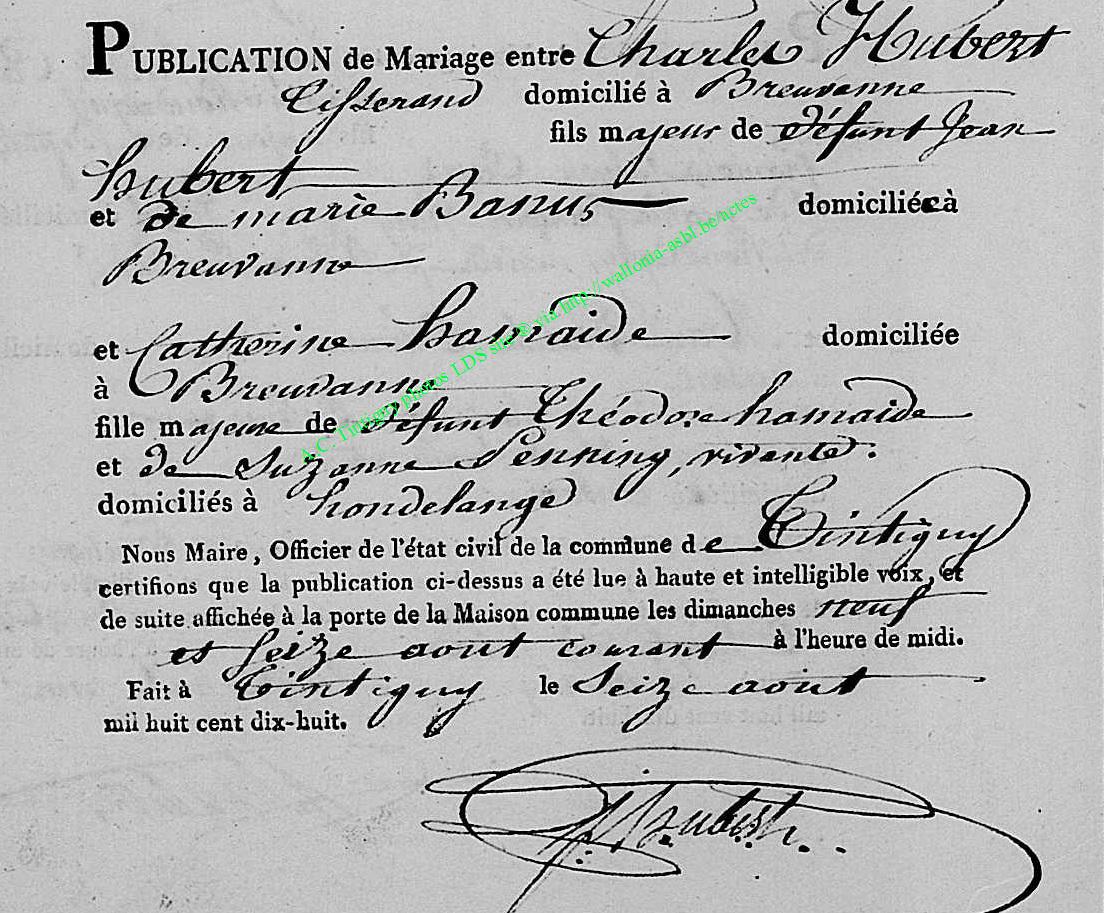 PUBLICATION de Mariage entre Charles Hubert
Tisserand domicilié à Breuvanne
fils majeur de défunt Jean
hubert
et de marie Banus domiciliée à
Breuvanne
et Catherine hamaide domiciliée
à Breuvanne
fille majeure de défunt Théodore hamaide
et de Suzanne Penning, vivante.
domiciliés à hondelange
Nous Maire, Officier de l'état civil de la commune de Tintigny
certifions que la publication ci-dessus a été lue à haute et intelligible voix, et
de suite affichée à la porte de la Maison commune les dimanches neuf
et seize aout courant à l'heure de midi.
Fait à Tintigny le Seize aout
mil huit cent dix-huit.
Hubert
A.C. Tintigny photos LDS site® via http://wallonia-asbl.be/actes